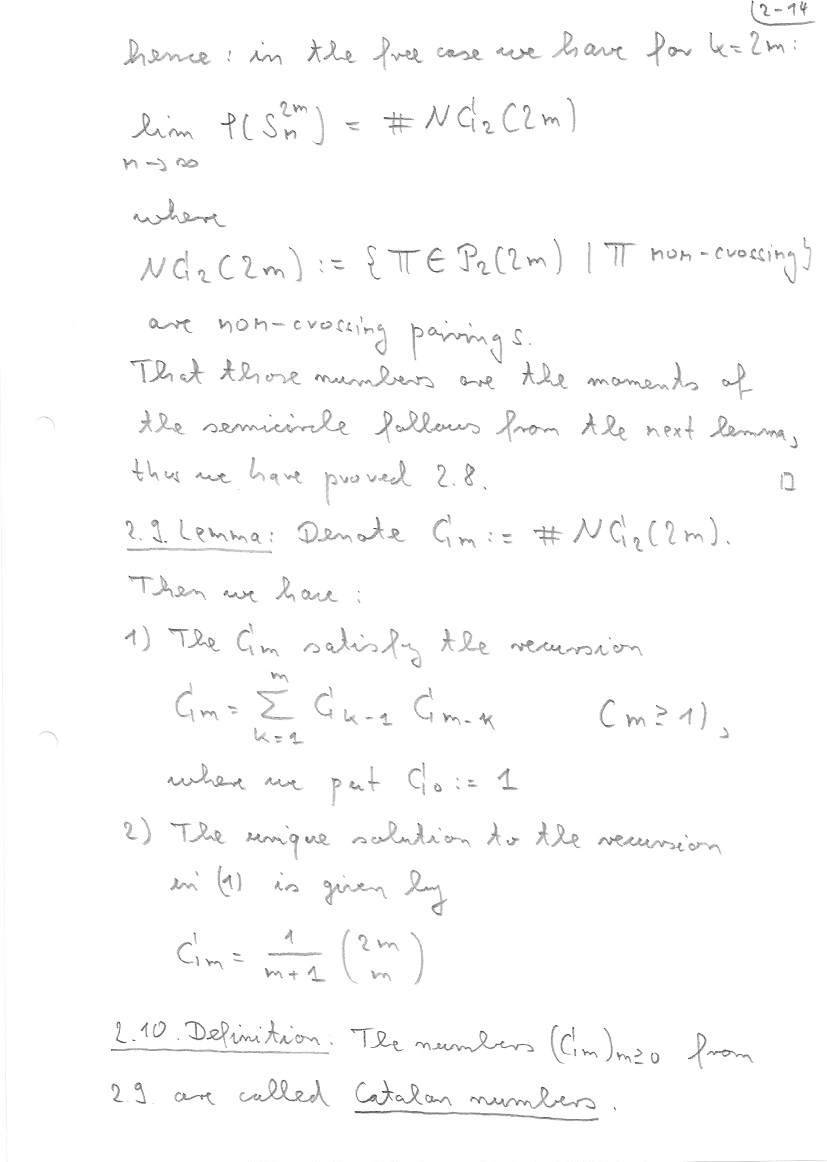 2-14
hence: in the free case we have for k=2m:
lim φ(S_n^{2m}) = # NC₂(2m)
n→∞
where
NC₂(2m) := {π ∈ P₂(2m) | π non-crossing}
are non-crossing pairings.
That those numbers are the moments of
the semicircle follows from the next lemma,
thus we have proved 2.8. □
2.9. Lemma: Denote C_m := # NC₂(2m).
Then we have:
1) The C_m satisfy the recursion
C_m = ∑_{k=1}^{m} C_{k-1} C_{m-k} (m ≥ 1),
where we put C₀ := 1
2) The unique solution to the recursion
in (1) is given by
C_m = \frac{1}{m+1} \binom{2m}{m}
2.10. Definition: The numbers (C_m)_{m≥0} from
2.9. are called Catalan numbers.